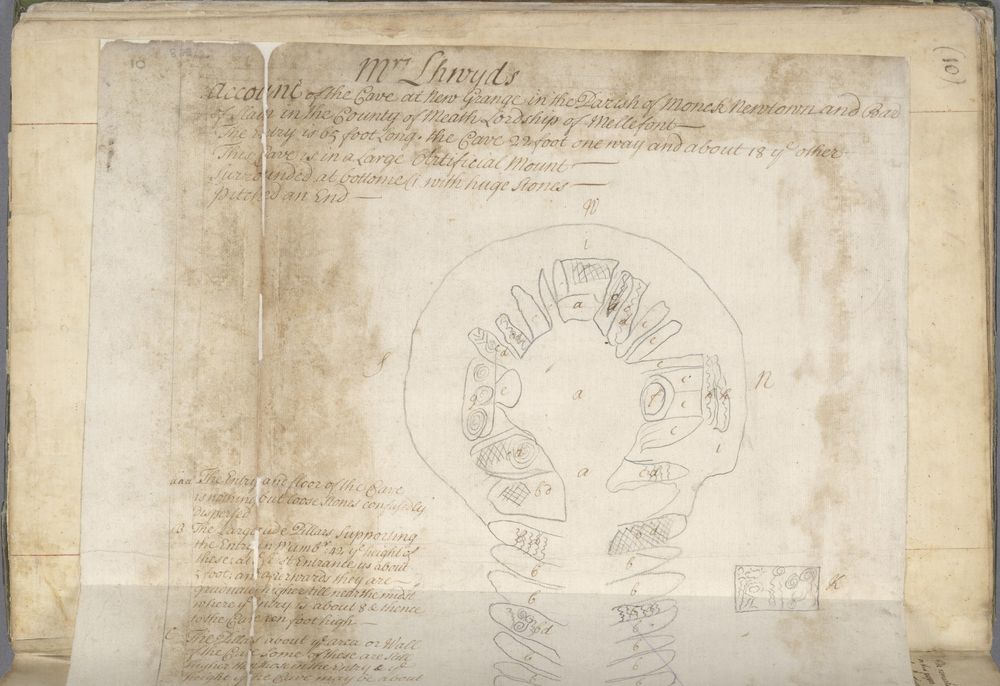 (10)
Mr. Lhwyds
account of the Cave at New Grange in the Parish of Monck Newtown and
of Slain in the County of Meath Lordship of Mellefont
The Entry is 65 foot Long. the Cave 22 foot one way and about 18 ye other
This Cave is in a Large Artificial Mount
surrounded at bottome with huge Stones
pitched an End
W
i
a
d
e
e
S
N
a
c
c
f
g
c
c
h
i
a
d
c d
b d
b d
b
b
b
b
b d
b
b
b
b
K
aaa The Entry and floor of the Cave
is nothing but loose stones confusedly
dispersed
B The Large side Pillars Supporting
the Entry in Numbr. 42, ye height of
these at ye 1st Entrance is about
foot; and afterwards they are
gradually higher still near the midst
where ye Entry is about 8 & thence
to the Cave ten foot high
C The Pillars about ye area or Wall
of the Cave Some of these are still
higher than those in the Entry & ye
height of the Cave may be about